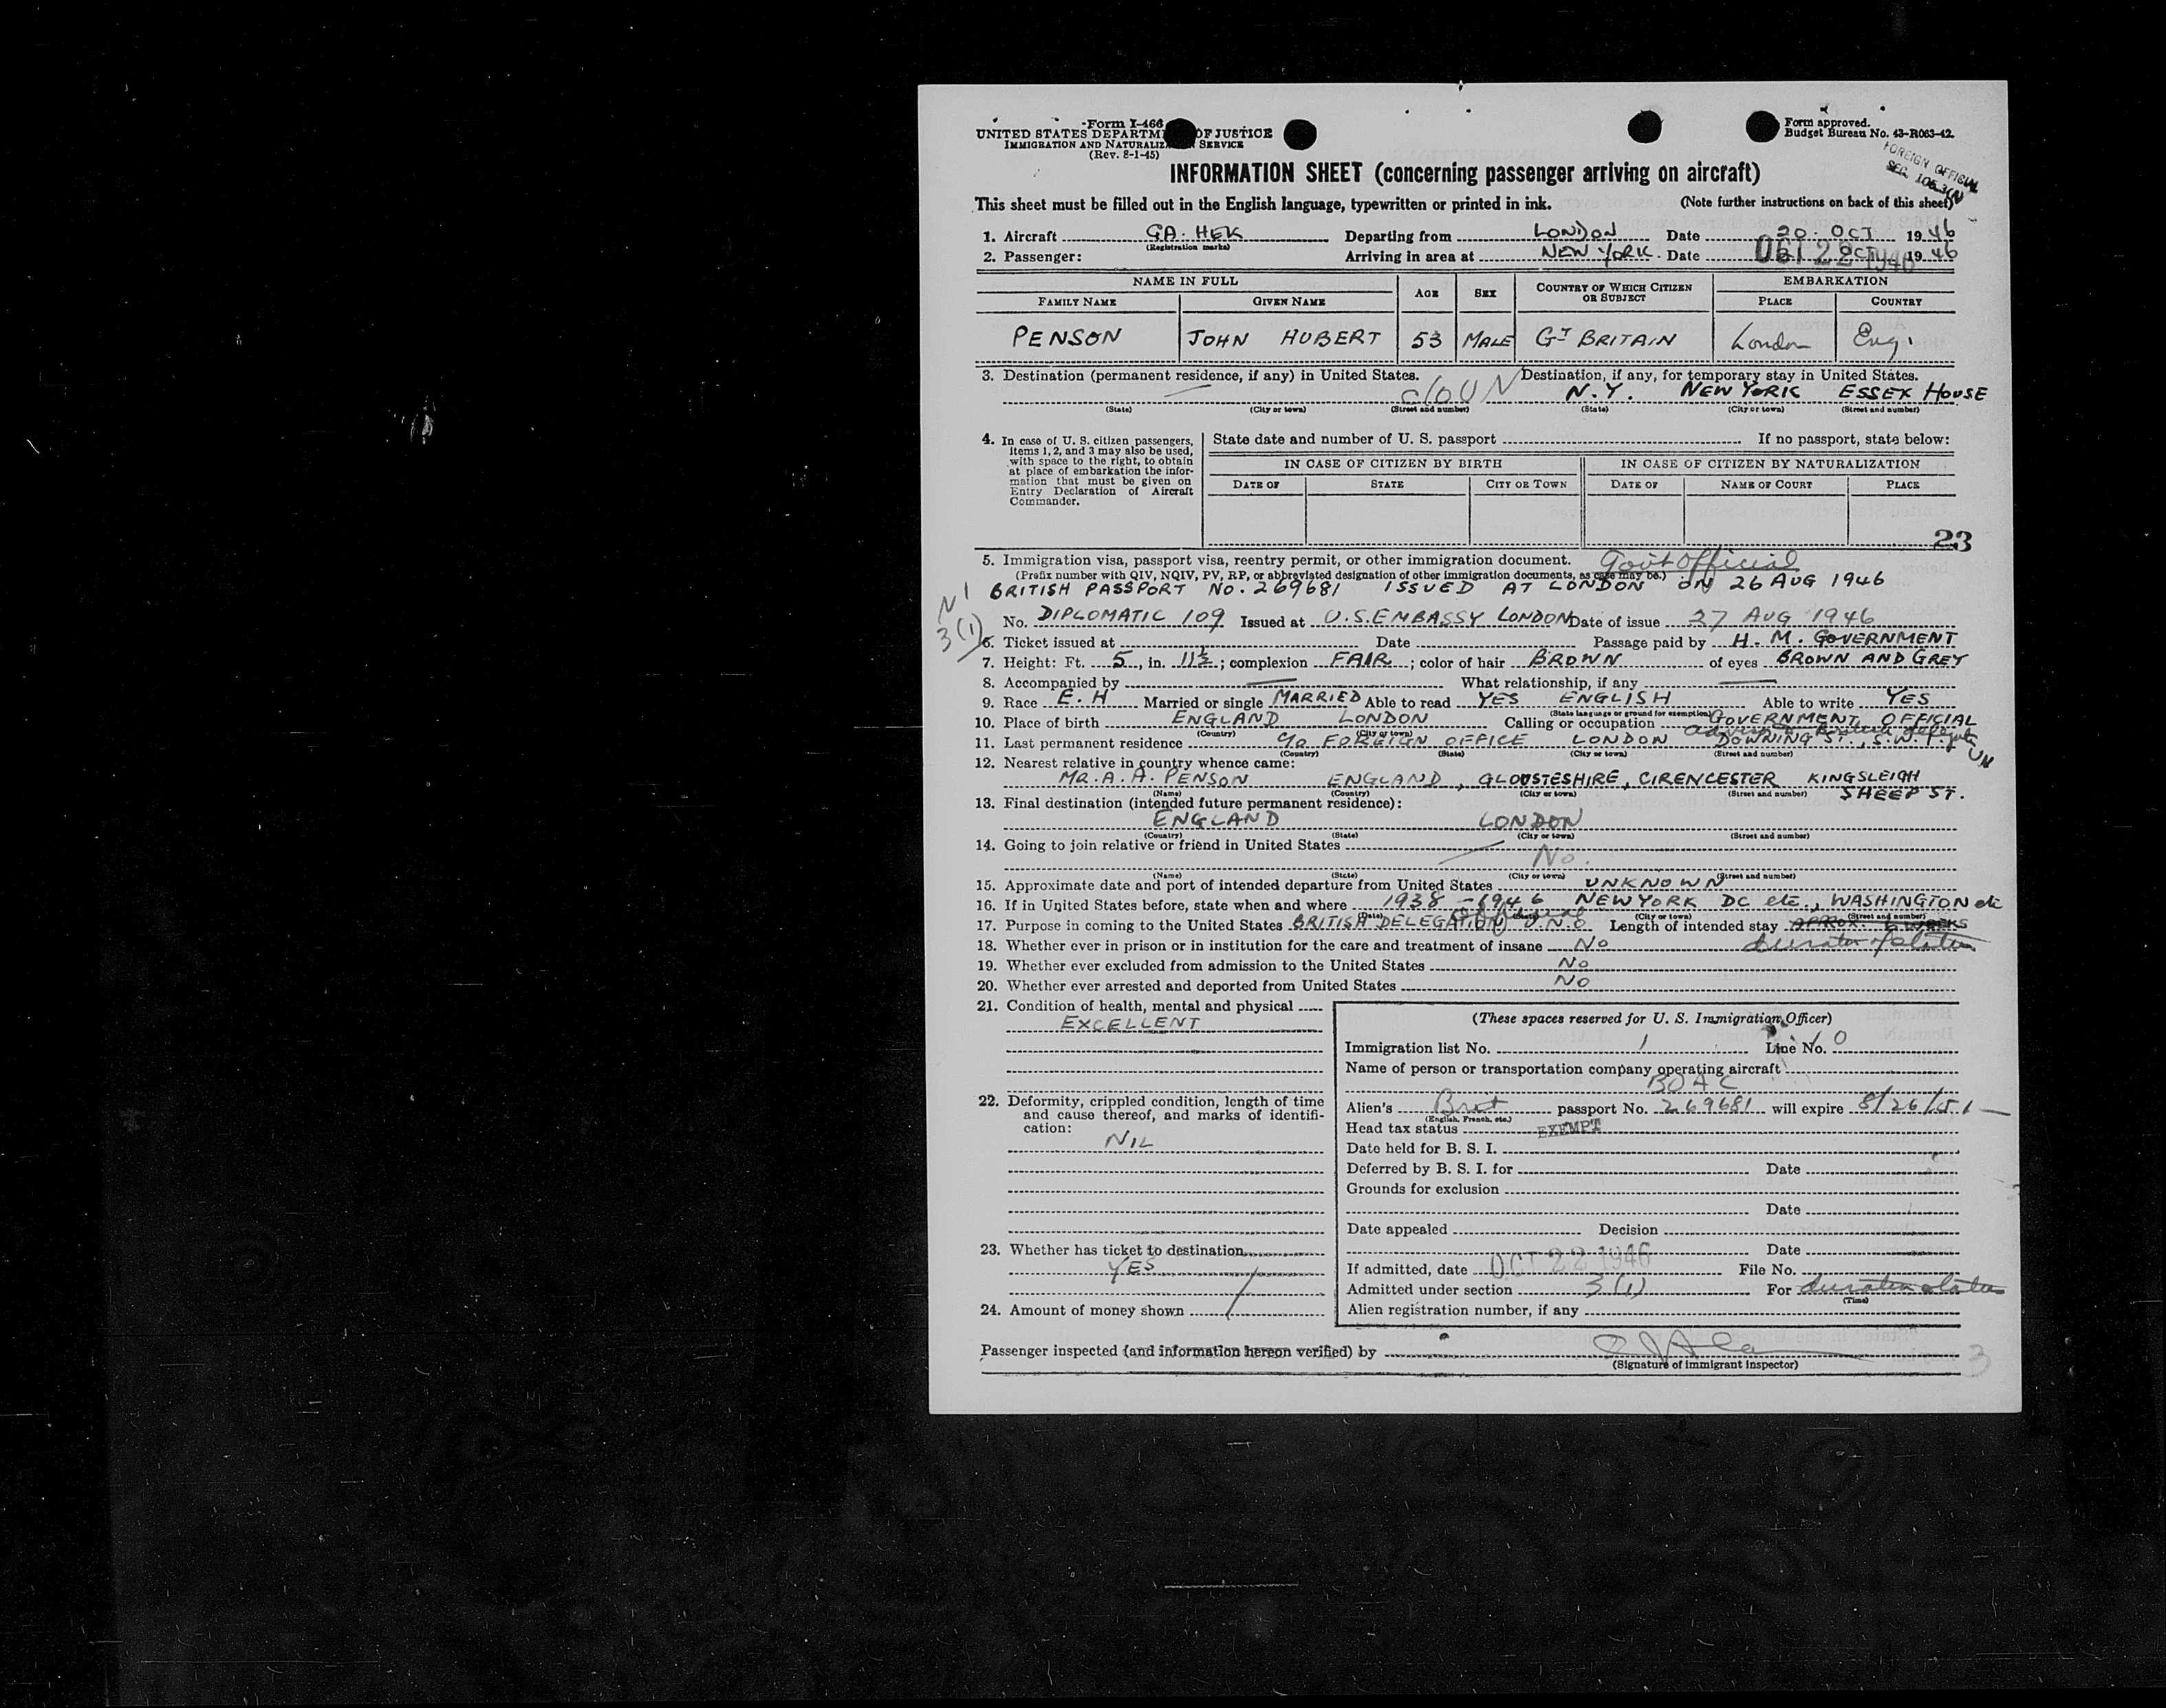 Form I-466
UNITED STATES DEPARTM OF JUSTICE
IMMIGRATION AND NATURALIZ SERVICE
(Rev. 8-1-45)
Form approved.
Budget Bureau No. 43-R063-42.
FOREIGN OFFICIAL
SEC.
INFORMATION SHEET (concerning passenger arriving on aircraft)
This sheet must be filled out in the English language, typewritten or printed in ink. (Note further instructions on back of this sheet)
1. Aircraft GA. HEK Departing from LONDON Date 20. OCT 1946
(Registration marks)
2. Passenger: Arriving in area at NEW YORK. Date OCT 22 1946 OCT 1946
NAME IN FULL AGE SEX COUNTRY OF WHICH CITIZEN OR SUBJECT EMBARKATION
FAMILY NAME GIVEN NAME PLACE COUNTRY
PENSON JOHN HUBERT 53 MALE GT BRITAIN London Eng.
3. Destination (permanent residence, if any) in United States. Destination, if any, for temporary stay in United States.
c/o UN N.Y. NEW YORK ESSEX HOUSE
(State) (City or town) (Street and number) (State) (City or town) (Street and number)
4. In case of U. S. citizen passengers, items 1, 2, and 3 may also be used, with space to the right, to obtain at place of embarkation the information that must be given on Entry Declaration of Aircraft Commander.
State date and number of U. S. passport If no passport, state below:
IN CASE OF CITIZEN BY BIRTH IN CASE OF CITIZEN BY NATURALIZATION
DATE OF STATE CITY OR TOWN DATE OF NAME OF COURT PLACE
23
5. Immigration visa, passport visa, reentry permit, or other immigration document. Gov't Official
(Prefix number with QIV, NQIV, PV, RP, or abbreviated designation of other immigration documents, as case may be.)
BRITISH PASSPORT NO. 269681 ISSUED AT LONDON ON 26 AUG 1946
N 1
3(1)
No. DIPLOMATIC 109 Issued at U.S. EMBASSY LONDON Date of issue 27 AUG 1946
6. Ticket issued at Date Passage paid by H. M. GOVERNMENT
7. Height: Ft. 5, in. 11½; complexion FAIR; color of hair BROWN of eyes BROWN AND GREY
8. Accompanied by What relationship, if any
9. Race E. H Married or single MARRIED Able to read YES ENGLISH Able to write YES
(State language or ground for exemption)
10. Place of birth ENGLAND LONDON Calling or occupation GOVERNMENT OFFICIAL
(Country) (City or town)
UN
11. Last permanent residence c/o FOREIGN OFFICE LONDON DOWNING ST., S.W.1.
(Country) (State) (City or town) (Street and number)
12. Nearest relative in country whence came:
MR. A. A. PENSON ENGLAND, GLOUSTESHIRE, CIRENCESTER KINGSLEIGH
SHEEP ST.
(Name) (Country) (City or town) (Street and number)
13. Final destination (intended future permanent residence):
ENGLAND LONDON
(Country) (State) (City or town) (Street and number)
14. Going to join relative or friend in United States
No.
(Name) (State) (City or town) (Street and number)
15. Approximate date and port of intended departure from United States UNKNOWN
16. If in United States before, state when and where 1938 - 1946 NEW YORK DC etc., WASHINGTON etc
(Date) (State) (City or town) (Street and number)
17. Purpose in coming to the United States BRITISH DELEGATION U.N.O Length of intended stay APROX. 6 WEEKS
duration of status
18. Whether ever in prison or in institution for the care and treatment of insane No
19. Whether ever excluded from admission to the United States No
20. Whether ever arrested and deported from United States No
21. Condition of health, mental and physical
EXCELLENT
22. Deformity, crippled condition, length of time and cause thereof, and marks of identification:
NIL
23. Whether has ticket to destination
YES
24. Amount of money shown
(These spaces reserved for U. S. Immigration Officer)
Immigration list No. 1 Line No. 10
Name of person or transportation company operating aircraft
BOAC
Alien's Brit passport No. 269681 will expire 8/26/51
(English, French, etc.)
Head tax status EXEMPT
Date held for B. S. I.
Deferred by B. S. I. for Date
Grounds for exclusion
Date
Date appealed Decision
Date
If admitted, date OCT 22 1946 File No.
Admitted under section 3(1) For duration status
(Time)
Alien registration number, if any
Passenger inspected (and information hereon verified) by
(Signature of immigrant inspector)
3